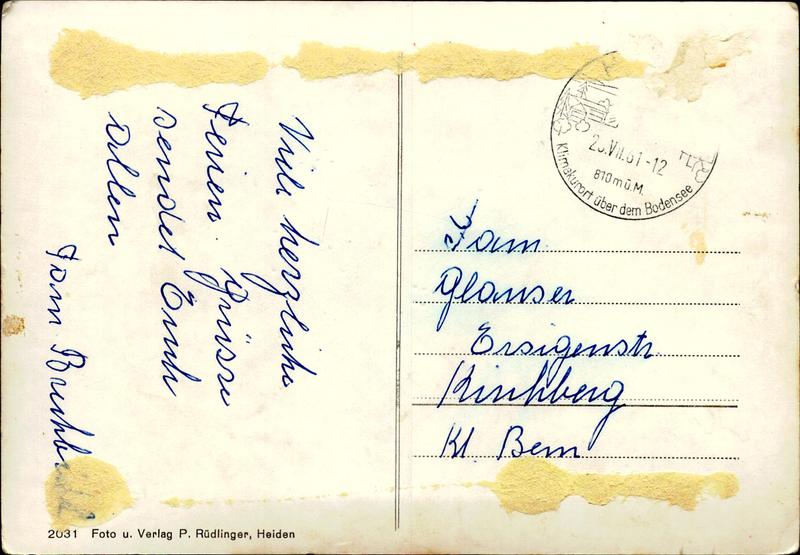 Viele herzliche
Ferien. Grüsse
sendet Euch
Allen
Fam
Fam.
Glauser
Ersigenstr.
Kirchberg
Kt. Bern
VII.61-12
810 m ü.M.
Klimakurort über dem Bodensee
2031 Foto u. Verlag P. Rüdlinger, Heiden